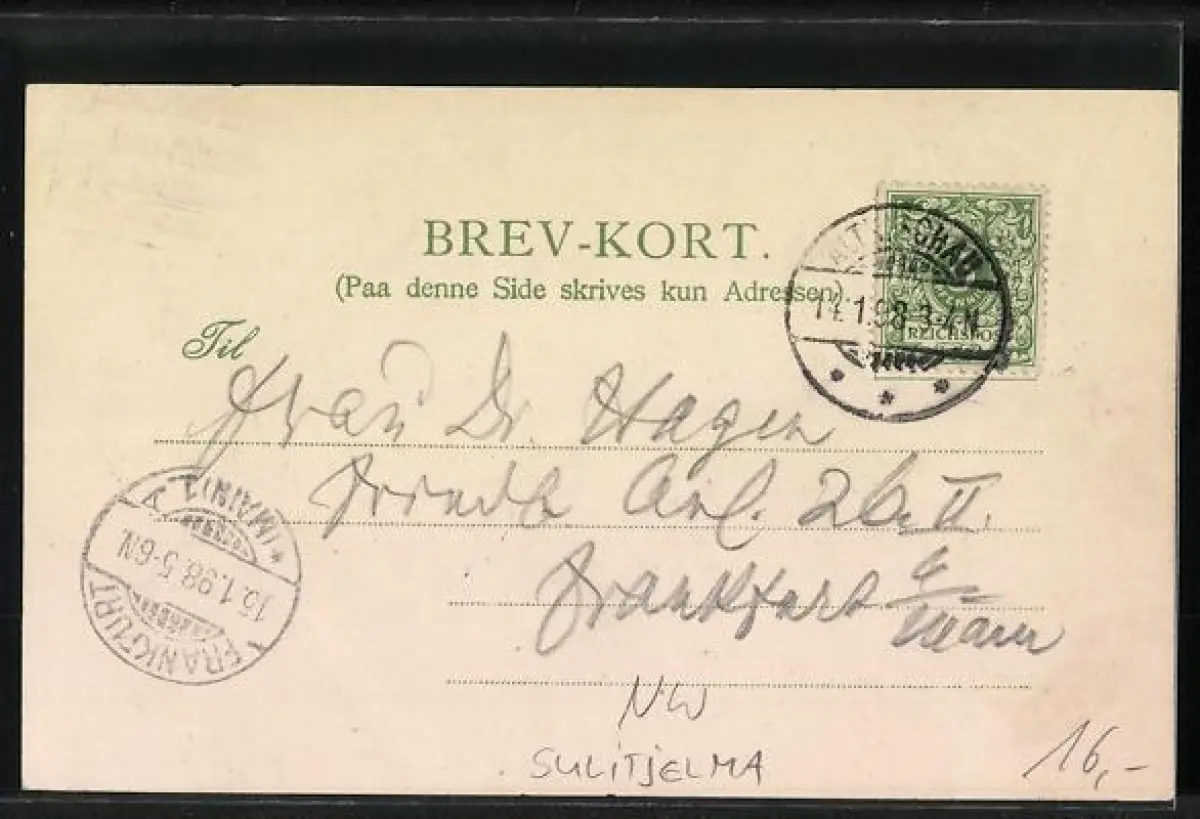 BREV-KORT.
(Paa denne Side skrives kun Adressen).
Til
Frau Dr. Hagen
26. II.
Frankfurt a/
Main
NW
SULITJELMA
16,-
14.1.98.3-4N.
REICHSPOST
FRANKFURT
16.1.98.5-6N.
*(MAIN)1.